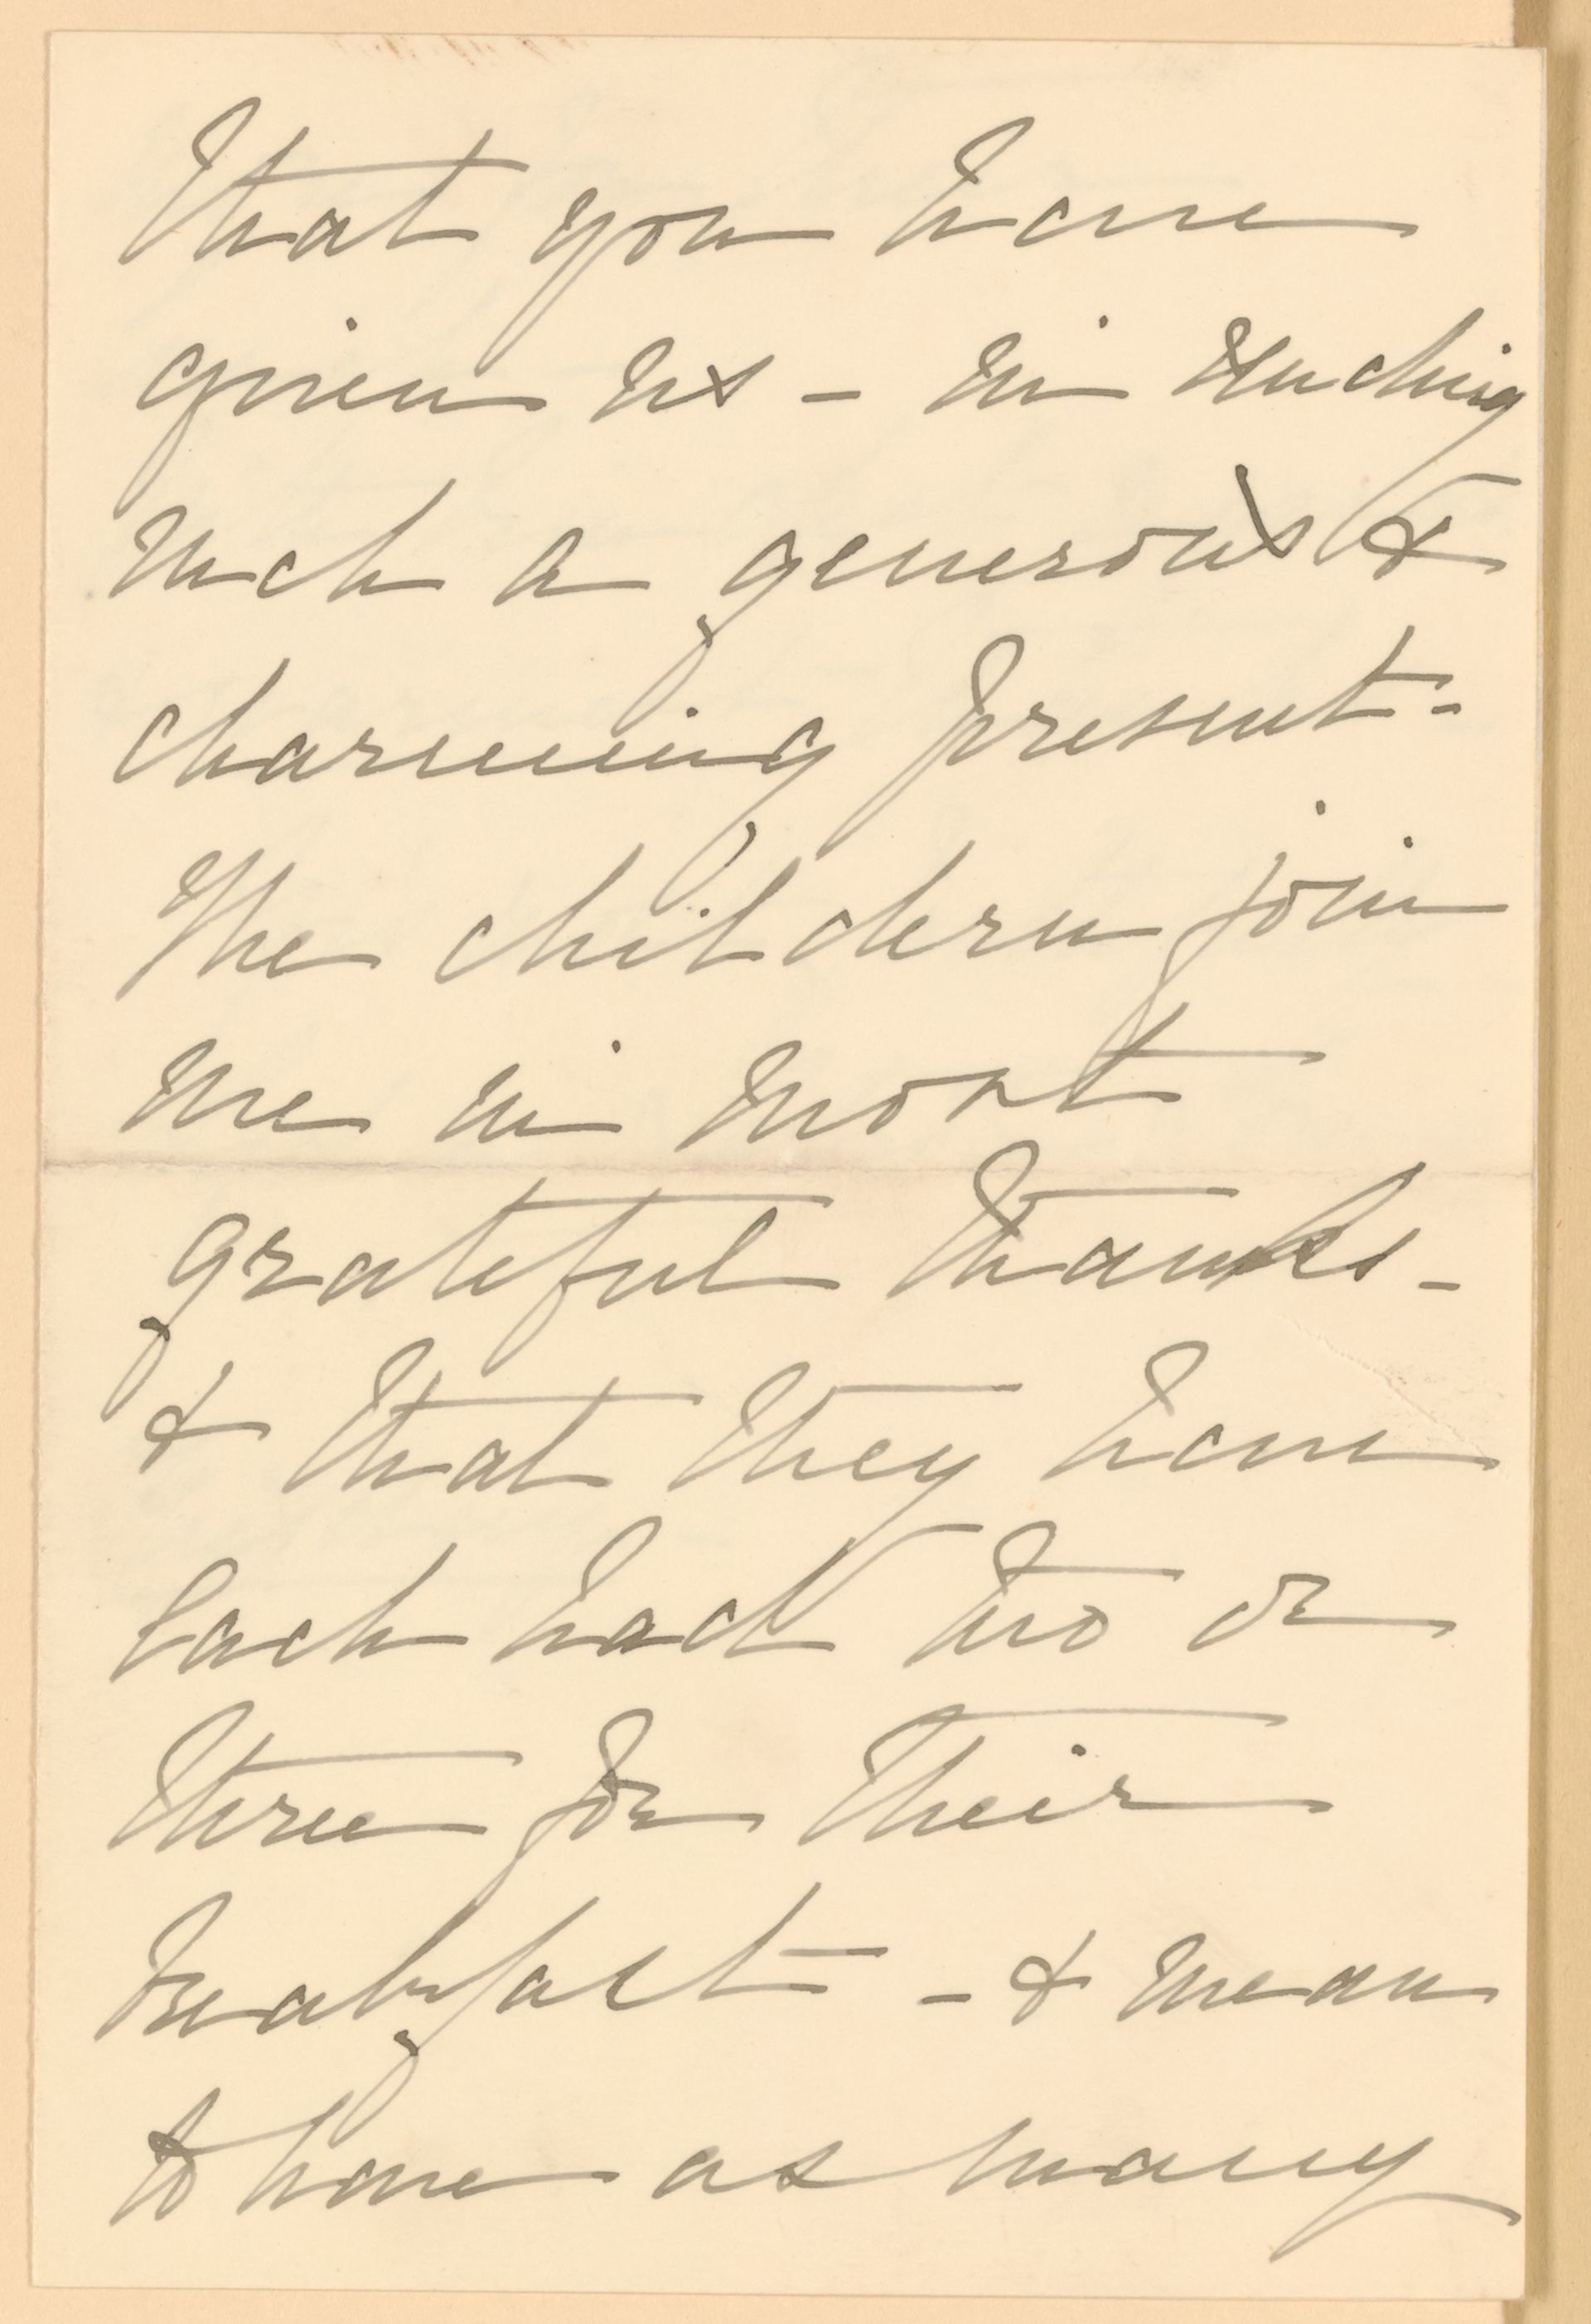 that you have
given us - in sending
such a generous &
charming present -
The children join
me in most
grateful thanks -
& that they have
each had two or
three for their
breakfast - & mean
to have as many